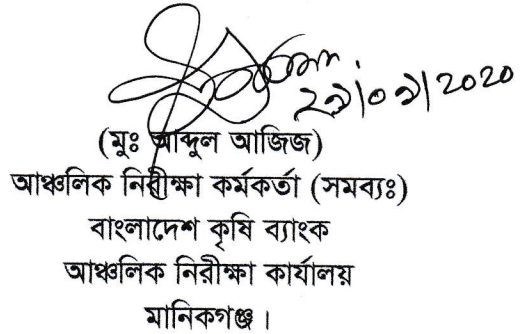 ২৯/০৯/২০২০
(মুঃ আব্দুল আজিজ)
আঞ্চলিক নিরীক্ষা কর্মকর্তা (সমব্যঃ)
বাংলাদেশ কৃষি ব্যাংক
আঞ্চলিক নিরীক্ষা কার্যালয়
মানিকগঞ্জ।